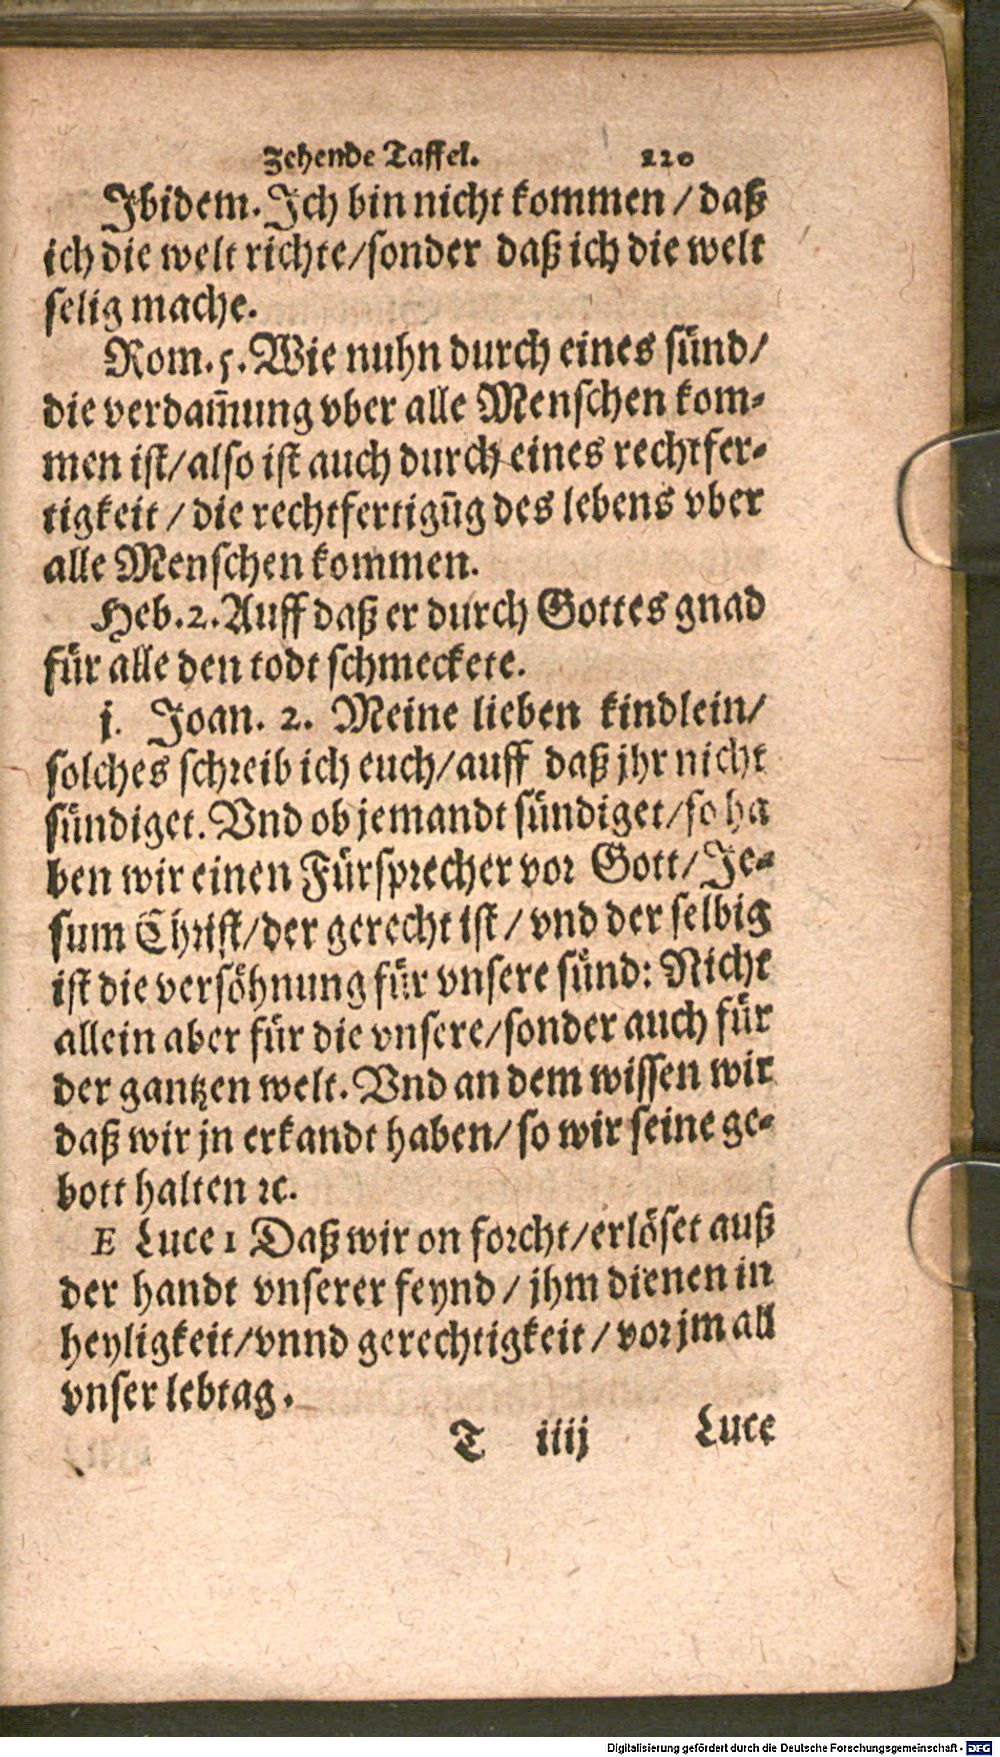 Zehende Taffel. 220
Ibidem. Ich bin nicht kommen / daß
ich die welt richte/sonder daß ich die welt
selig mache.
Rom. 5. Wie nuhn durch eines sünd/
die verdam̃ung vber alle Menschen kom-
men ist/also ist auch durch eines rechtfer-
tigkeit / die rechtfertigũg des lebens vber
alle Menschen kommen.
Heb. 2. Auff daß er durch Gottes gnad
für alle den todt schmeckete.
j. Joan. 2. Meine lieben kindlein/
solches schreib ich euch/auff daß jhr nicht
sündiget. Vnd ob jemandt sündiget/so ha
ben wir einen Fürsprecher vor Gott/Je-
sum Christ/der gerecht ist / vnd der selbig
ist die versöhnung für vnsere sünd: Nicht
allein aber für die vnsere/sonder auch für
der gantzen welt. Vnd an dem wissen wir
daß wir jn erkandt haben/so wir seine ge-
bott halten ꝛc.
E Luce 1 Daß wir on forcht/erlöset auß
der handt vnserer feynd / jhm dienen in
heyligkeit/vnnd gerechtigkeit / vor jm all
vnser lebtag.
T iiij Luce
Digitalisierung gefördert durch die Deutsche Forschungsgemeinschaft - DFG